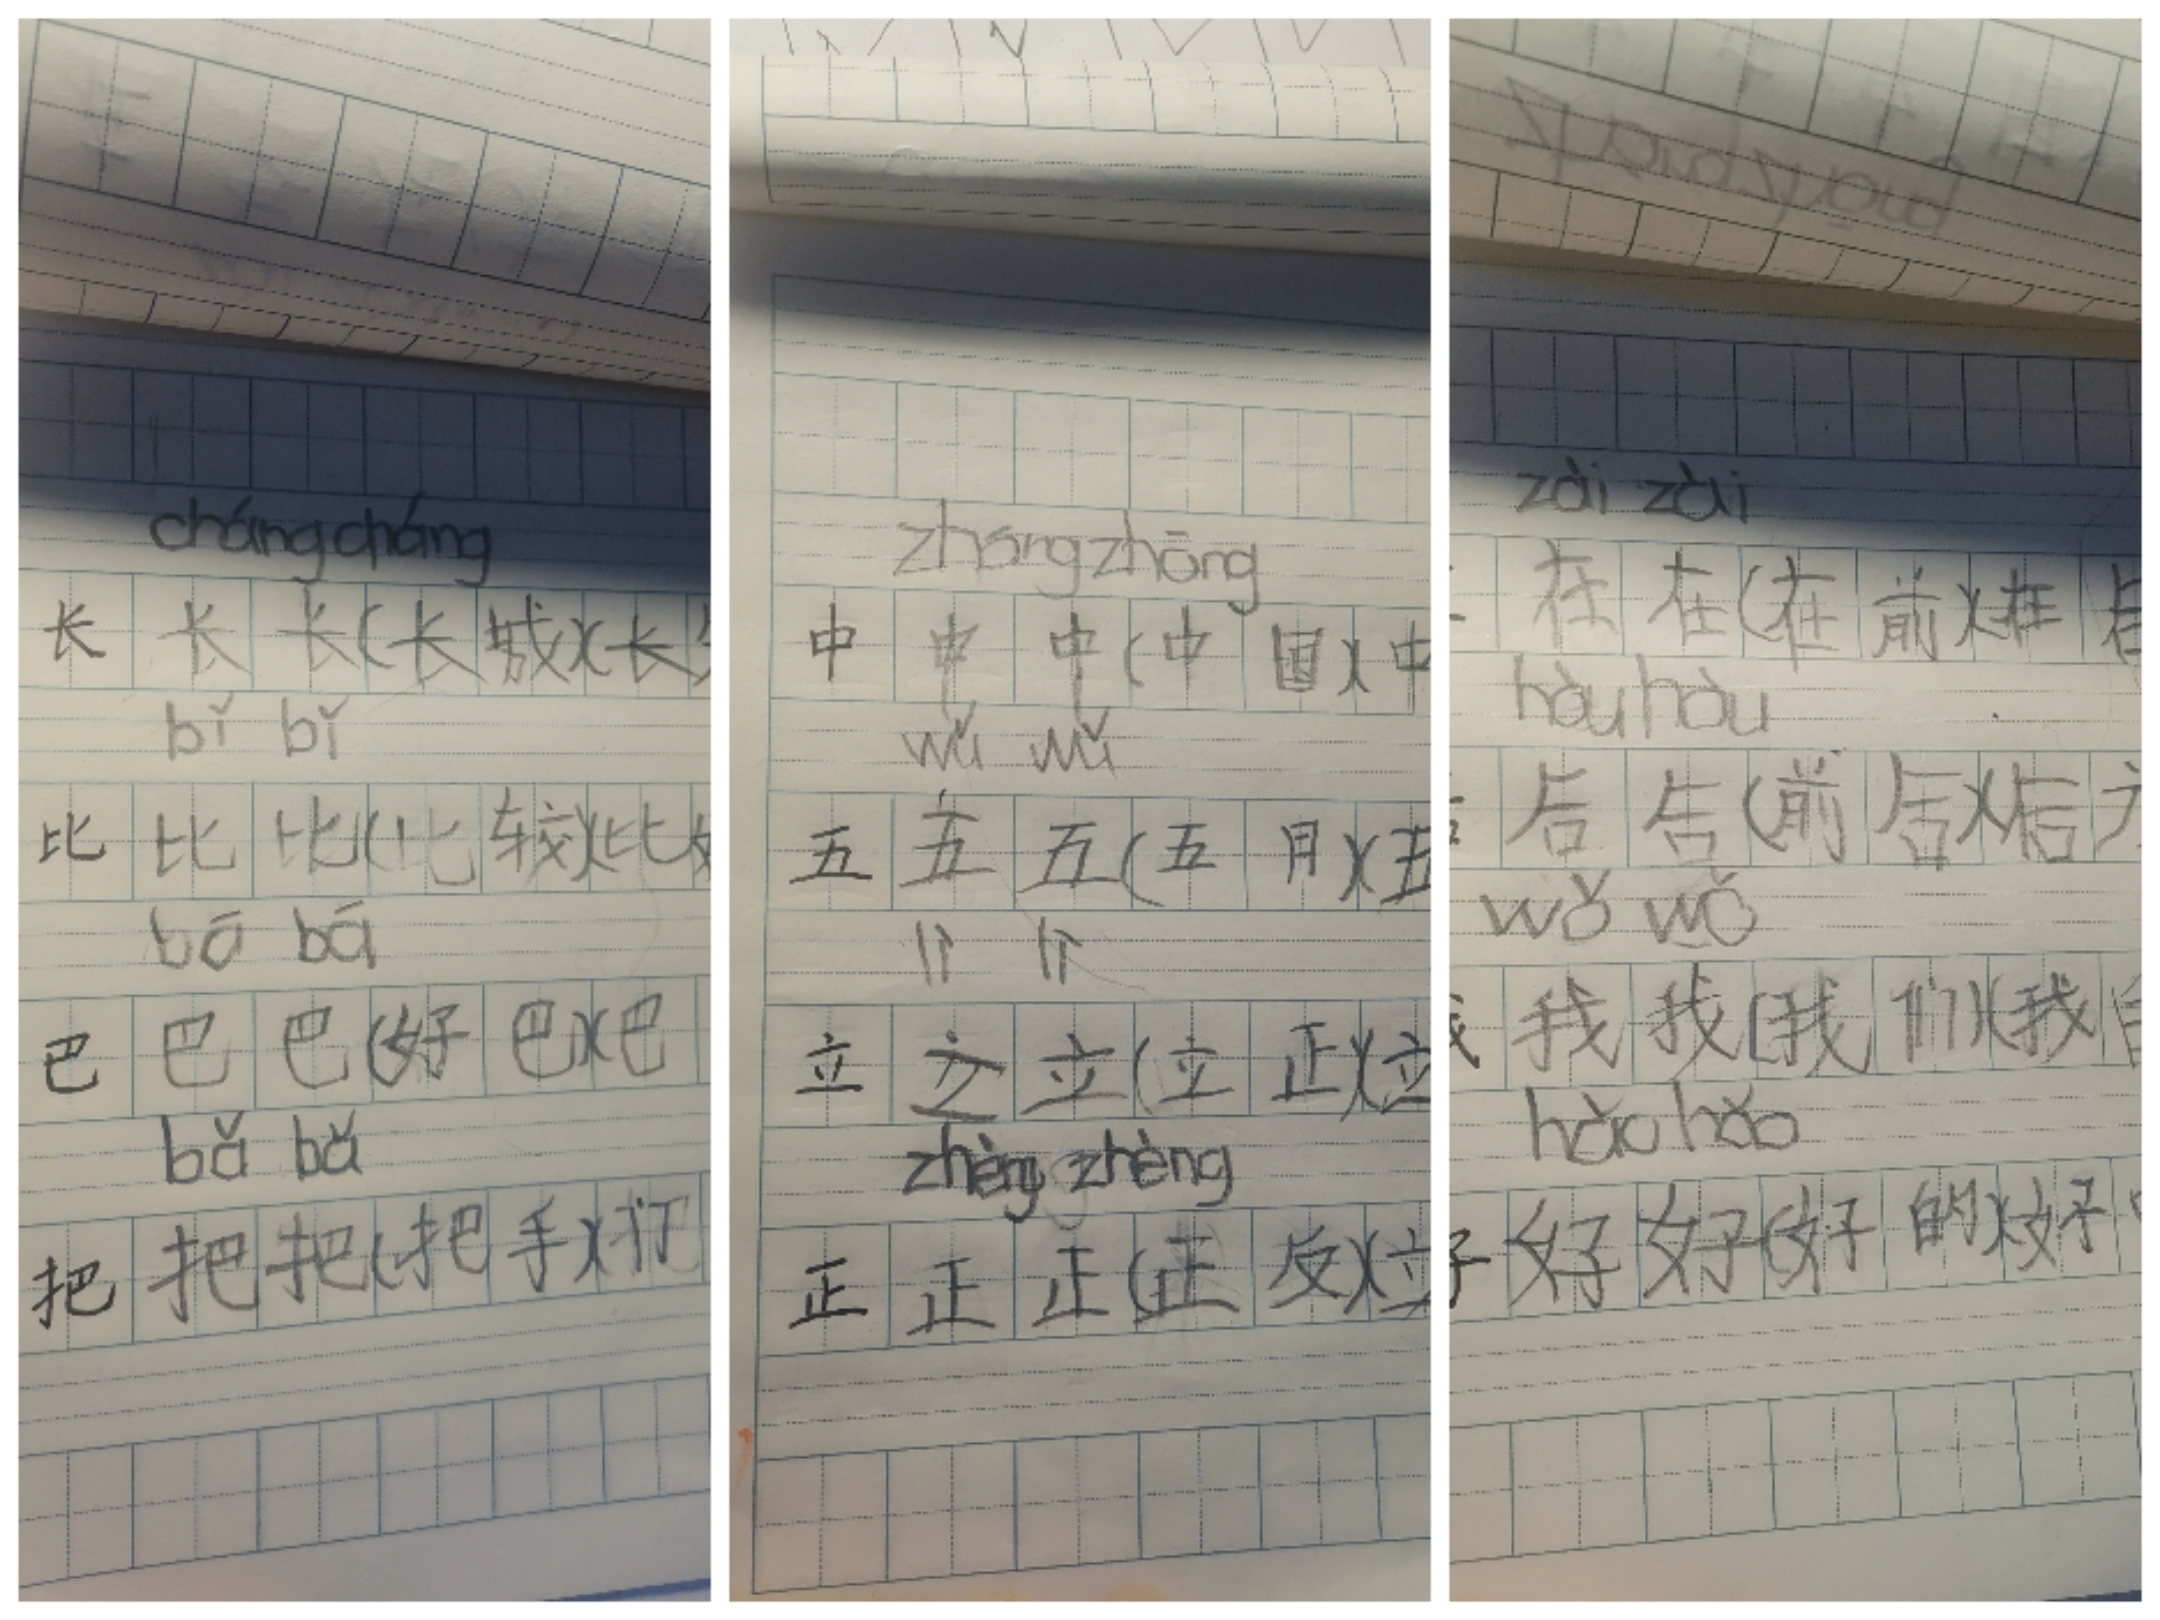 cháng cháng
长 长 长 (长 城) (长
bǐ bǐ
比 比 比 (比 较) (比
bā bā
巴 巴 巴 (好 巴) (巴
bǎ bǎ
把 把 把 (把 手) (打
zhōng zhōng
中 中 中 (中 国) (中
wǔ wǔ
五 五 五 (五 月) (五
立 立 立 (立 正) (立
zhèng zhèng
正 正 正 (正 反) (立
zài zài
在 在 (在 前) (在
hòu hòu
后 后 (前 后) (后
wǒ wǒ
我 我 (我 们) (我
hǎo hǎo
好 好 (好 的) (好